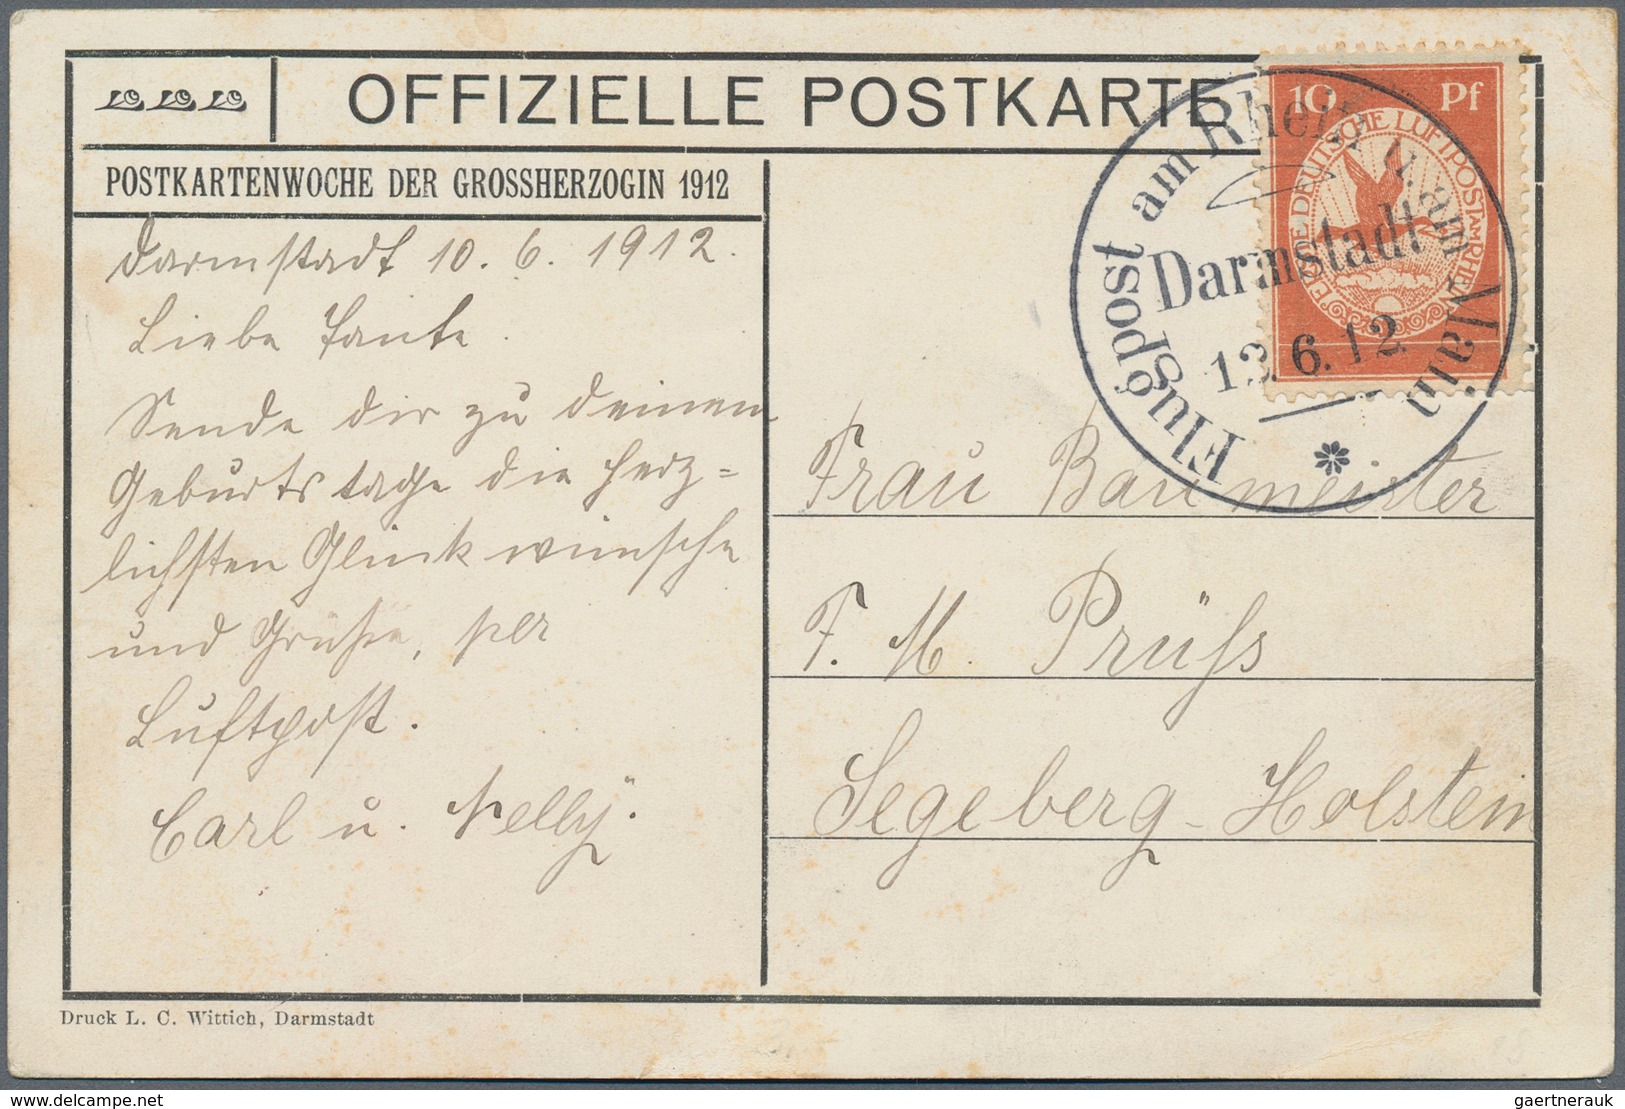 OFFIZIELLE POSTKARTE
POSTKARTENWOCHE DER GROSSHERZOGIN 1912
Darmstadt 10. 6. 1912.
Liebe Tante.
Sende dir zu deinem
Geburtstage die herz=
lichsten Glückwünsche
und Grüße, per
Luftpost.
Carl u. Nelly.
Druck L. C. Wittich, Darmstadt
10 Pf
ERSTE DEUTSCHE LUFTPOST AM RHEIN
Flugpost am Rhein u. am Main
Darmstadt
13.6.12
Frau Baumeister
F. M. Prüß
Segeberg-Holstein
www.delcampe.net
gaertnerauk